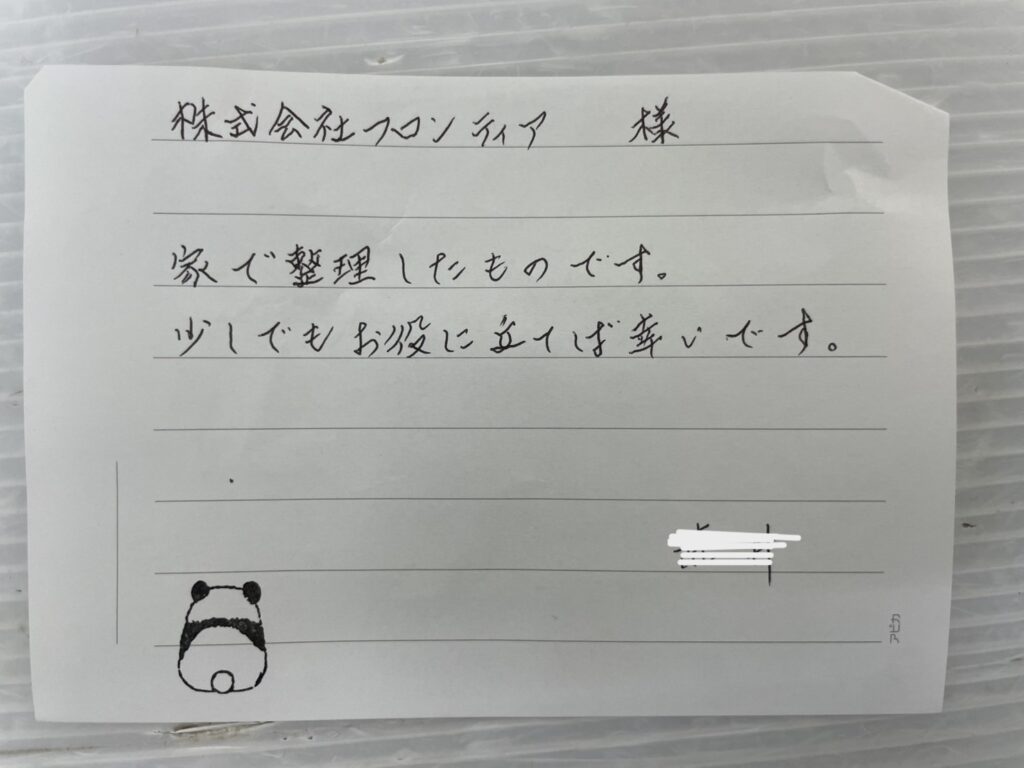 株式会社フロンティア 様
家で整理したものです。
少しでもお役に立てば幸いです。
アピカ